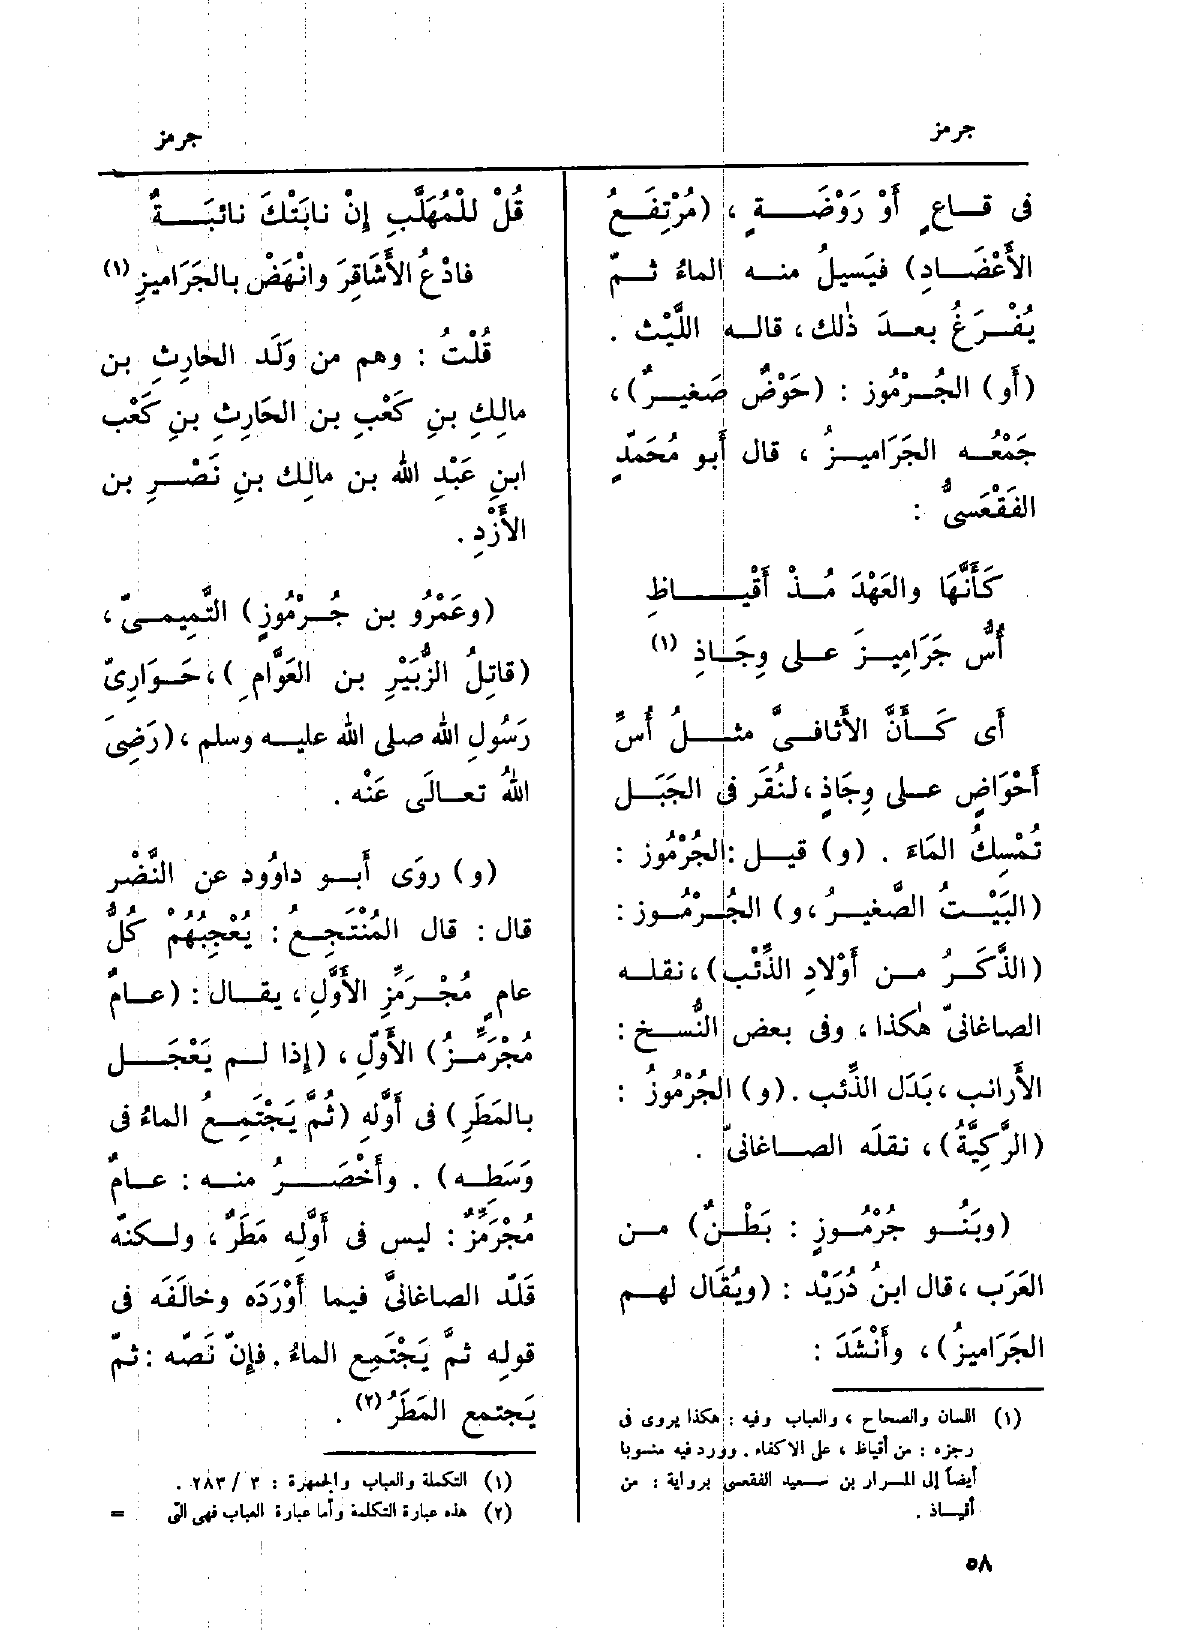 جرمز
فى قـاعٍ أَوْ رَوْضَـــةٍ ، (مُرْتِفَـعُ
الأَعْضَـادِ) فيَسِيلُ منـه الماءُ ثـمّ
يُفْـرَغُ بعـدَ ذٰلك، قالـه اللَّيْث .
(أَو) الجُـرْمُوز : (حَوْضٌ صَغيـرٌ)،
جَمْعُـه الجَرَاميـزُ ، قال أَبو مُحَمّدٍ
الفَقْعَسىُّ :
كَأَنَّهَا والعَهْدَ مُـذْ أَقْيَـــاظِ
أُسُّ جَرَامِيـزَ علـى وِجَـاذِ (١)
أَى كَــأَنَّ الأَثافـىَّ مثـلُ أُسِّ
أَحْوَاضٍ علـى وِجَاذٍ، لنُقَر فى الجَبَـل
تُمْسِكُ المَاءَ . (و) قيـل: الجُرْمُوز :
(البَيْـتُ الصَّغيـرُ، و) الجُـرْمُـوز :
(الذَّكَـرُ مـن أَوْلادِ الذِّئْب)، نقلـه
الصاغانىّ هٰكذا ، وفى بعض النُّسـخ :
الأَرانب ، بَدَل الذِّئب . (و) الجُرْمُوزُ :
(الرَّكِيَّةُ)، نقلَه الصـاغانىّ .
(وبَنُـو جُرْمُـوزٍ : بَطْـنٌ) مـن
العَرَب ، قال ابنُ دُرَيْد : (ويُقَال لهـم
الجَرَاميزُ) ، وأَنْشَدَ :
(١) اللسان والصحاح ، والعباب وفيه : هكذا يروى فى
رجزه : من أقياظ ، على الاكفاء . وورد فيه منسوبا
أيضاً إلى المـرار بن سـعيد الفقعسى برواية : من
أقيـاذ .
جرمز
قُلْ للْمُهَلَّبِ إِنْ نابَتْكَ نائبَـــةٌ
فادْعُ الأَشَاقِرَ وانْهَضْ بالجَرَاميزِ (١)
قُلْتُ : وهم من وَلَد الحارِثِ بن
مالِكِ بنِ كَعْبِ بن الحَارِثِ بنِ كَعْب
ابنِ عَبْدِ الله بن مالِك بنِ نَصْـرِ بن
الأَزْدِ .
(وعَمْرُو بن جُـرْمُوزٍ) التَّمِيمـىّ ،
(قاتِلُ الزُّبَيْرِ بن العَوَّامِ)، حَـوَارِىّ
رَسُولِ الله صلى الله عليـه وسلم ، (رَضِىَ
اللهُ تعـالَى عَنْه .
(و) روَى أَبـو داوُود عن النَّضْر
قال : قال المُنْتَجِـع : يُعْجِبُهُمْ كُلُّ
عامٍ مُجْـرَمِّزِ الأَوَّلِ ، يقـال : (عـامٌ
مُجْرَمِّـزُ) الأَوَّلِ ، (إِذا لـم يَعْجَـل
بالمَطَرِ) فى أَوّله (ثُمَّ يَجْتَمِـعُ الماءُ فى
وَسَطِـه) . وأَخْصَــرُ منـه : عـامٌ
مُجْرَمِّزٌ : ليس فى أَوَّلِه مَطَرٌ ، ولـكنّه
قَلّد الصاغانىَّ فيما أَوْرَدَه وخالَفَه فى
قوله ثمّ يَجْتَمِع الماءُ . فإِنّ نَصّه : ثمّ
يَجتمع المَطَرُ (٢) .
(١) التكملة والعباب والجمهرة : ٣ / ٢٨٣ .
(٢) هذه عبارة التكلمة وأما عبارة العباب فهى التى =
٥٨